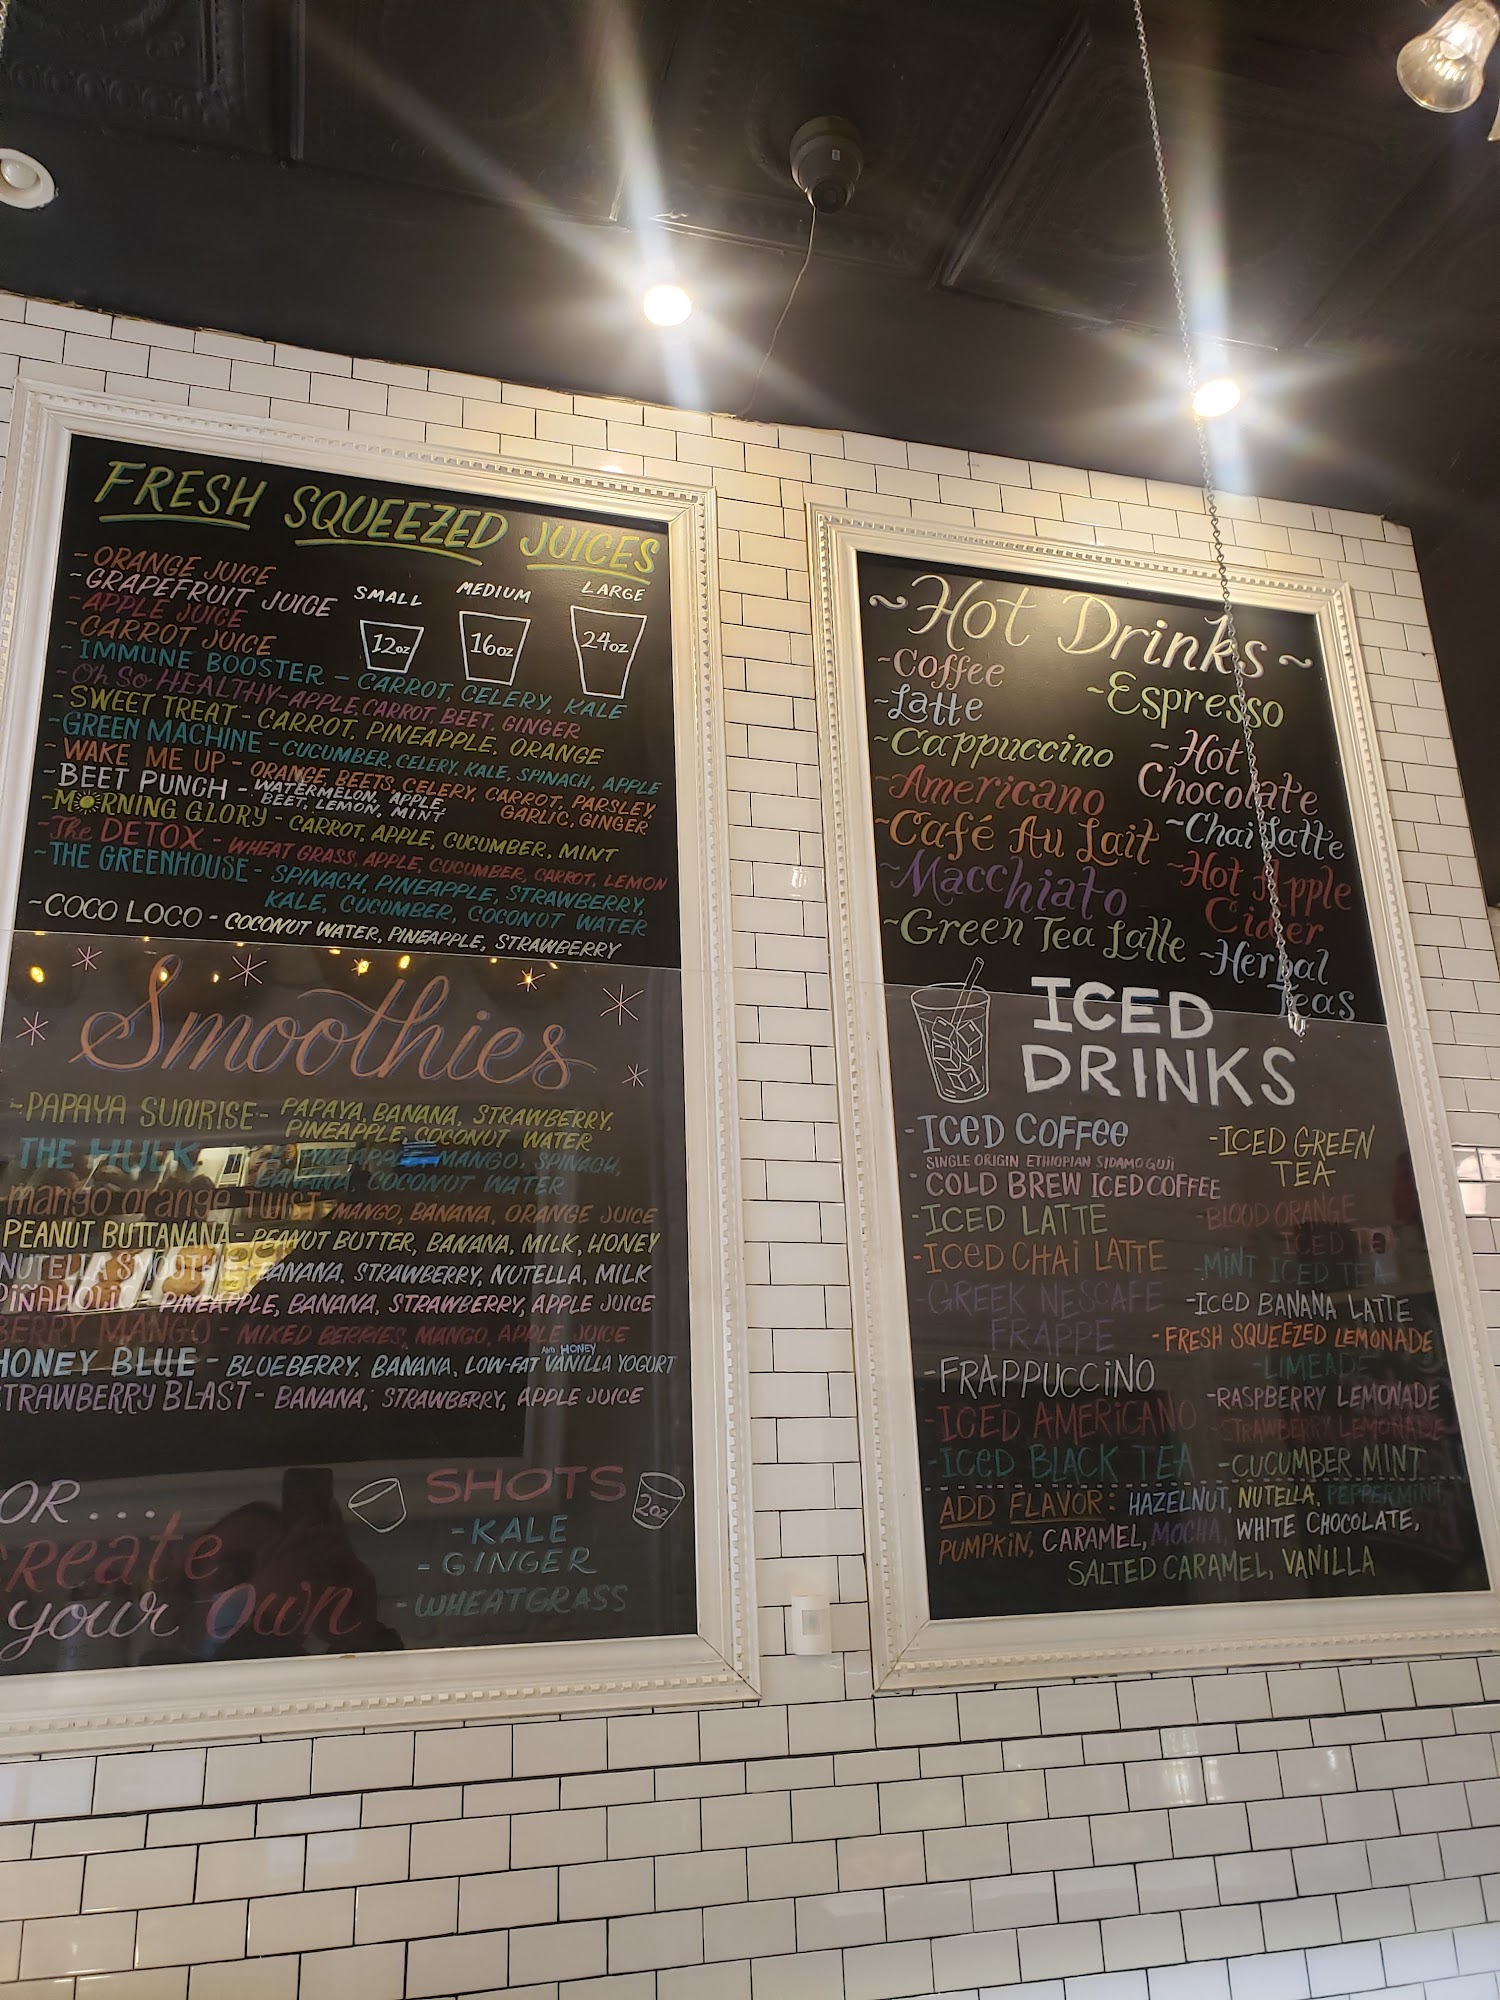 FRESH SQUEEZED JUICES
SMALL MEDIUM LARGE
12oz 16oz 24oz
- ORANGE JUICE
- GRAPEFRUIT JUICE
- APPLE JUICE
- CARROT JUICE
- IMMUNE BOOSTER - CARROT, CELERY, KALE
- Oh So HEALTHY - APPLE CARROT, BEET, GINGER
- SWEET TREAT - CARROT, PINEAPPLE, ORANGE
- GREEN MACHINE - CUCUMBER, CELERY, KALE, SPINACH, APPLE
- WAKE ME UP - ORANGE, BEETS, CELERY, CARROT, PARSLEY,
GARLIC, GINGER
- BEET PUNCH - WATERMELON, APPLE,
BEET, LEMON, MINT
- MORNING GLORY - CARROT, APPLE, CUCUMBER, MINT
- The DETOX - WHEAT GRASS, APPLE, CUCUMBER, CARROT, LEMON
- THE GREENHOUSE - SPINACH, PINEAPPLE, STRAWBERRY,
KALE, CUCUMBER, COCONUT WATER
- COCO LOCO - COCONUT WATER, PINEAPPLE, STRAWBERRY
Smoothies
- PAPAYA SUNRISE - PAPAYA, BANANA, STRAWBERRY,
PINEAPPLE, COCONUT WATER
THE HULK PINEAPPLE, MANGO, SPINACH,
BANANA, COCONUT WATER
mango orange TWIST - MANGO, BANANA, ORANGE JUICE
PEANUT BUTTANANA - PEANUT BUTTER, BANANA, MILK, HONEY
NUTELLA SMOOTHIE - BANANA, STRAWBERRY, NUTELLA, MILK
PIÑAHOLIC - PINEAPPLE, BANANA, STRAWBERRY, APPLE JUICE
BERRY MANGO - MIXED BERRIES, MANGO, APPLE JUICE
HONEY BLUE - BLUEBERRY, BANANA, LOW-FAT VANILLA YOGURT
AND HONEY
STRAWBERRY BLAST - BANANA, STRAWBERRY, APPLE JUICE
OR...
Create
your Own
SHOTS
2oz
- KALE
- GINGER
- WHEATGRASS
~Hot Drinks~
~Coffee
~Latte
~Cappuccino
~Americano
~Café Au Lait
~Macchiato
~Green Tea Latte
~Espresso
~Hot
Chocolate
~Chai Latte
~Hot Apple
Cider
~Herbal
Teas
ICED
DRINKS
- ICED COFFEE
SINGLE ORIGIN ETHIOPIAN SIDAMO GUJI
- COLD BREW ICED COFFEE
- ICED LATTE
- ICED CHAI LATTE
- GREEK NESCAFE
FRAPPE
- FRAPPUCCINO
- ICED AMERICANO
- ICED BLACK TEA
- ICED GREEN
TEA
- BLOOD ORANGE
ICED TEA
- MINT ICED TEA
- ICED BANANA LATTE
- FRESH SQUEEZED LEMONADE
- LIMEADE
- RASPBERRY LEMONADE
- STRAWBERRY LEMONADE
- CUCUMBER MINT
ADD FLAVOR: HAZELNUT, NUTELLA, PEPPERMINT,
PUMPKIN, CARAMEL, MOCHA, WHITE CHOCOLATE,
SALTED CARAMEL, VANILLA